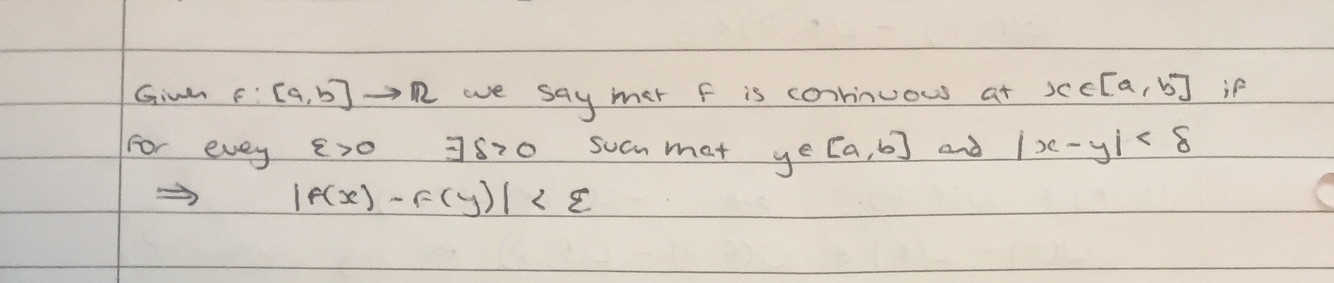 Given f: [a,b] → ℝ we say that f is continuous at x∈[a,b] if
for every ε>0 ∃δ>0 such that y∈[a,b] and |x-y| < δ
⇒ |f(x) - f(y)| < ε